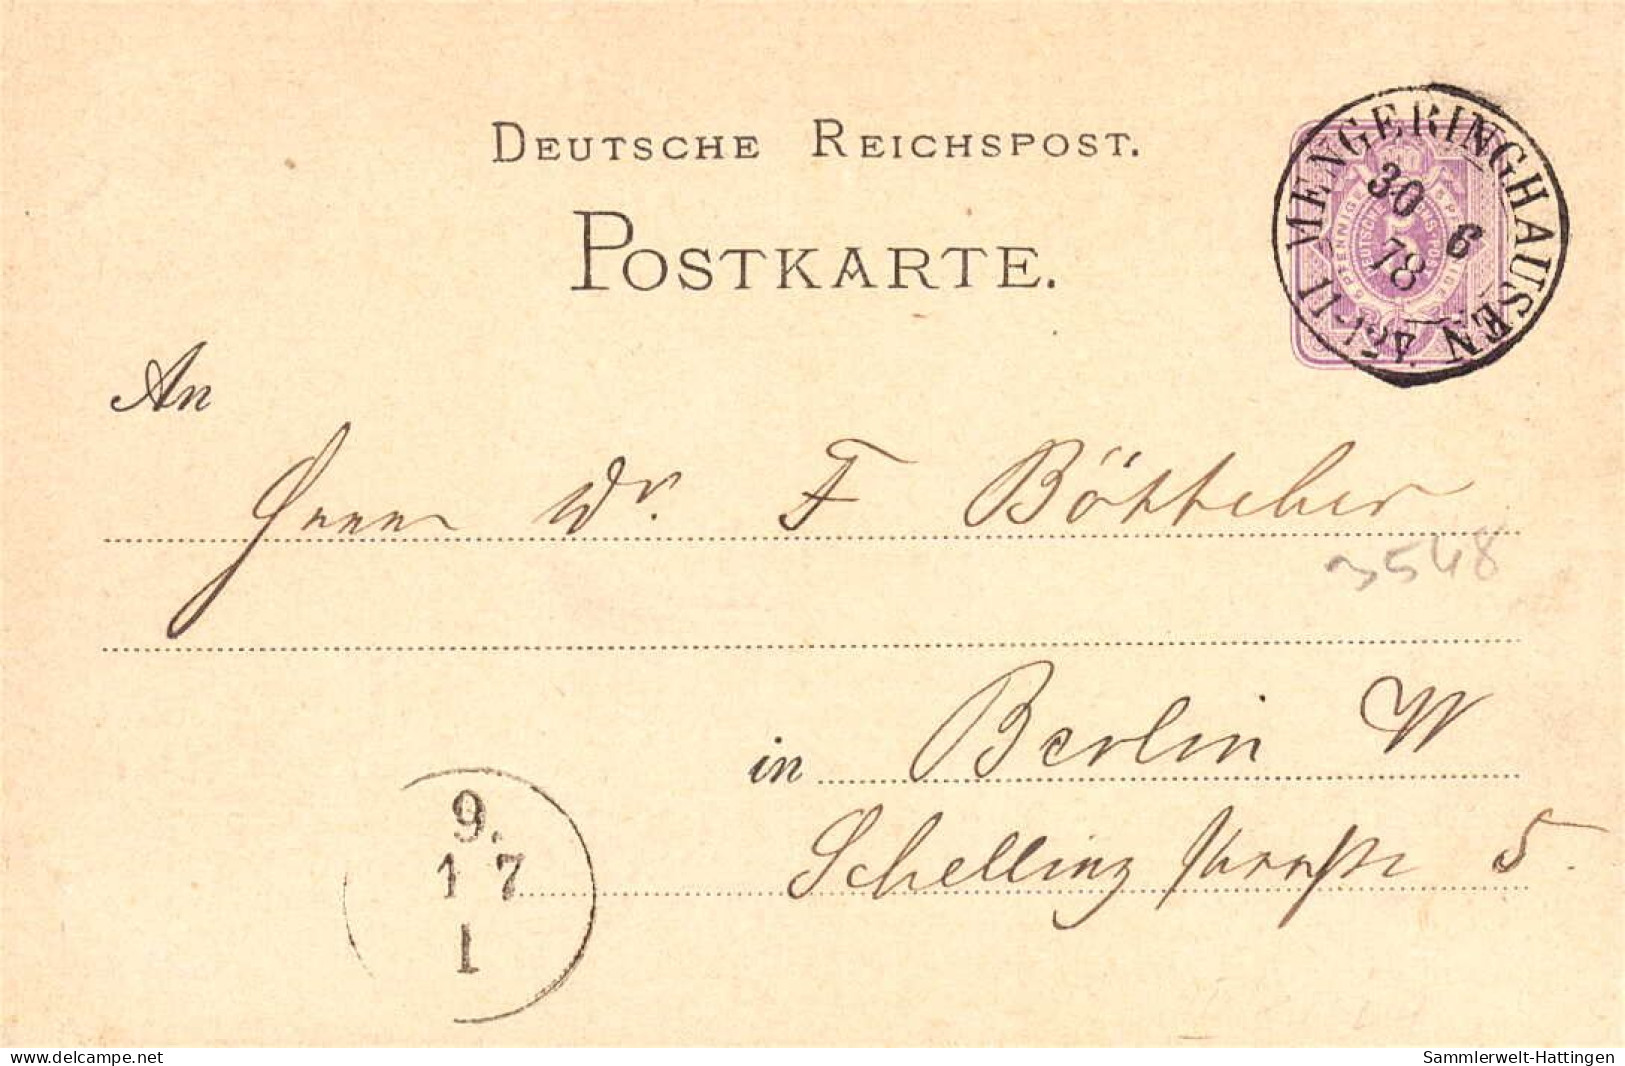 DEUTSCHE REICHSPOST.
POSTKARTE.
MENGERINGHAUSEN
30 6
78
5 PFENNIGE
DEUTSCHE REICHS-POST
5
An
Herrn Dr. F Böttcher
3548
in Berlin W
Schelling straße 5.
9.
1 7
1
delcampe.net
Sammlerwelt-Hattingen